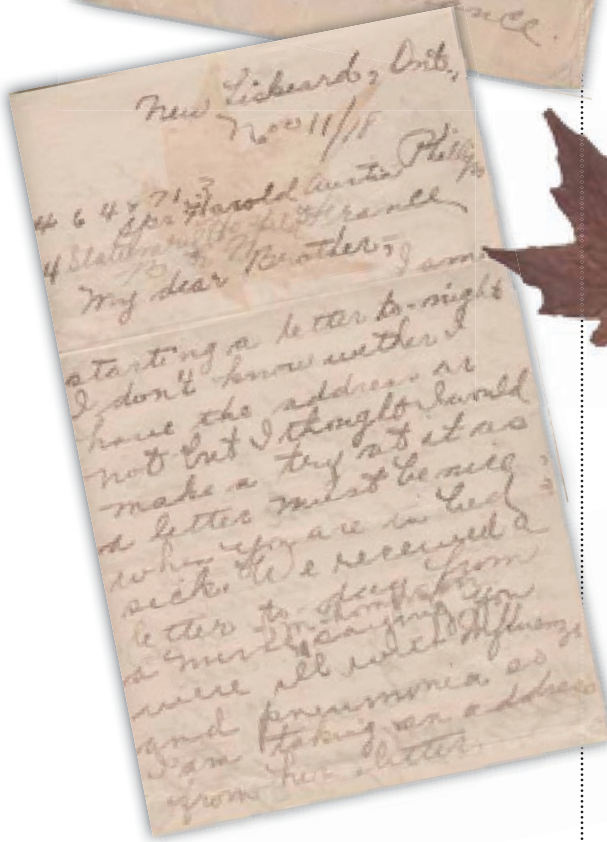 ance.
New Liskeard, Ont.,
Nov 11/18
Spr Harold Austin Phillips
4 Stationary France
My dear Brother,
I am
starting a letter to-night
I don't know wether I
have the address or
not but I thought I would
make a try at it as
a letter must be nice
when you are in bed
sick. We received a
letter to-day from
a Miss Thompson
saying you
were ill with Influenza
and pneumonia so
I am taking an address
from her letter.